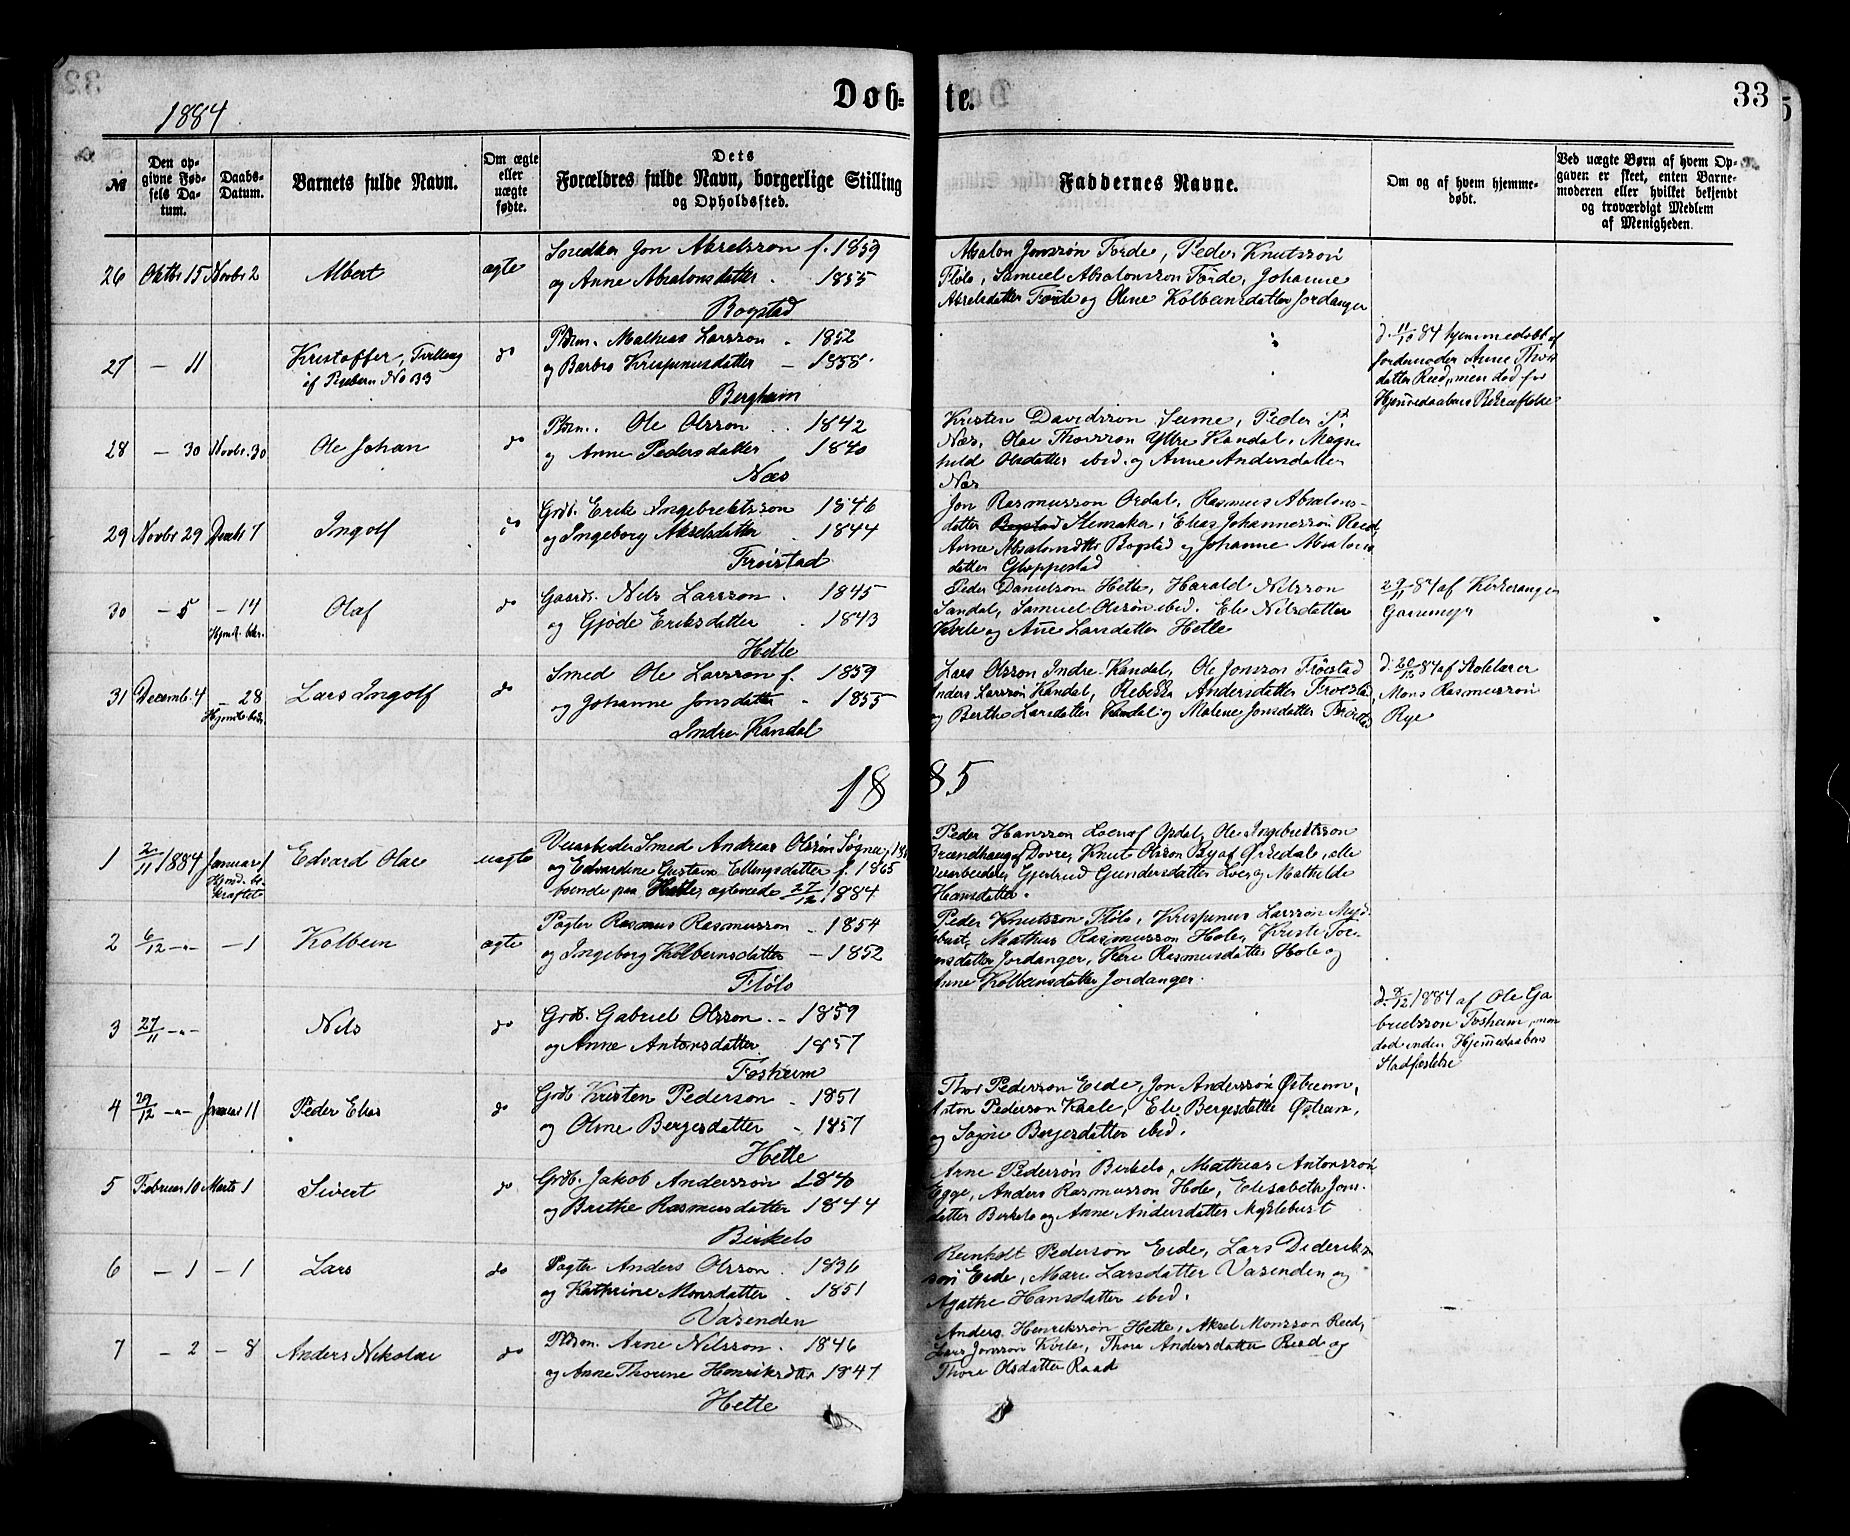 1884
Døb-
te.
33
№
Den op-
givne Fød-
sels Da-
tum.
Daabs-
Datum.
Barnets fulde Navn.
Om ægte
eller
uægte
fødte.
Dets
Forældres fulde Navn, borgerlige Stilling
og Opholdssted.
Faddernes Navne.
Om og af hvem hjemme-
døbt.
Ved uægte Børn af hvem Op-
gaven er skeet, enten Barne-
moderen eller hvilket bekjendt
og troværdigt Medlem
af Menigheden.
26 Oktbr 15 Novbr 2 Albert ægte
Jon Akselssøn f. 1859
og Anne Absalonsdatter . 1855
Bogstad
Absalon Jonssøn Førde, Peder Knutssøn
Flølo, Samuel Absalonssøn Førde, Johanne
Akselsdatter Førde og Oline Kolbeinsdatter Jordanger
27 — 11 Kristoffer, Tvilling do
af No 33
Pldsm. Mathias Larssøn . 1852
og Barbro Krispinusdatter — 1858
Bergheim
d. 11/10 84 hjemmedøbt af
Jordemoder Anne Thor
datter Reed, men død før
Hjemmedaabens Bekræftelse
28 — 30 Novbr. 30 Ole Johan do
Pldsm. Ole Olssøn . 1842
og Anne Pedersdatter 1840
Næs
Kristen Davidssøn Seime, Peder P.
Næs, Olai Thorssøn Ytre Kandal, Magn
hild Olsdatter ibid. og Anne Andersdatter
Næs
29 Novbr 29 Decbr 7 Ingolf do
Grdb. Erik Ingebrektssøn 1846
og Ingeborg Akselsdatter . 1844
Frøistad
Jon Rasmussøn Ordal, Rasmus Absalons-
datter Bogstad Hemsaker, Elias Johannessøn Reed
Anne Absalonsdtr Bogstad og Johanne Absalons
datter Gloppestad
30 — 5 — 14 Olaf do
Hjemd. bekr.
Gaardb. Nils Larssøn . 1845
og Gjøde Eriksdatter . 1843
Hette
Peder Danielsøn Hette, Harald Nilssøn
Sandal, Samuel Olesøn ibid. Eli Nilsdatter
Kvile og Ane Larsdatter Hette
29/11 84 af Kirkesanger
Gausemyr
31 Decemb. 4 — 28 Lars Ingolf do
Hjemdb. bekr.
Smed Ole Larssøn f. 1859
og Johanne Jonsdatter . 1855
Indre Kandal
Lars Olssøn Indre Kandal, Ole Jonssøn Frøistad
Anders Larssøn Kandal, Rebekka Andersdatter Frøistad
og Berthe Larsdatter Kandal og Malene Jonsdatter Frøistad
d. 20/12 84 af Skolelærer
Mons Rasmussøn
Rye
1885
1 2/11 1884 Januar 1 Edvard Olai uægte
Hjemd. be-
kræftet
Veiarbeider Smed Andreas Olssøn Søgne,
og Edvardine Gustava Ellingsdatter f. 1865
boende paa Hette, ægteviede 27/12 1884
Peder Hanssøn Loen af Opdal, Ole Ingebrektssøn
Brændhaug af Dovre, Knut Olssøn By af Ørsedale, alle
Veiarbeidere, Gjertrud Gundersdatter Loen og Mathilde
Hansdatter.
2 6/12 -"- — 1 Kolbein ægte
Pagter Rasmus Rasmussøn — 1854
og Ingeborg Kolbeinsdatter — 1852
FløLo
Peder Knutssøn Fløle, Krispinus Larssøn Myk
lebust, Mathias Rasmussøn Hole, Kristi Tol-
ensdatter Jordanger, Kari Rasmusdatter Hole og
Anne Kolbeinsdatter Jordanger.
3 27/11 -"- Nils do
Grdb. Gabriel Olssøn. — 1859
og Anne Antonsdatter 1857
Fosheim
d. 9/12 1884 af Ole Ga
brielssøn Fosheim, men
død inden Hjemmedaabens
Stadfæstelse
4 29/12 -"- Januar 11 Peder Elias do
Grdb Kristen Pederson — 1851
og Oline Bergesdatter — 1857
Hette
Thor Pederssøn Eide, Jon Anderssøn Østrem,
Anton Pederssøn Kaale, Eli Bergesdatter Østrem,
og Sofie Bergesdatter ibid.
5 Februar 10 Marts 1 Sivert do
Grdb. Jakob Anderssøn 1840
og Brithe Rasmusdatter 1844
Birkelo
Arne Pederssøn Birkelo, Mathias Antonssøn
Egge, Anders Rasmussøn Hole, Elisabeth Jons-
datter Birkelo og Anne Andersdatter Myklebust
6 — 1 — 1 Lars do
Pagter Anders Olssøn . 1836
og Kathrine Monsdatter . 1851
Vasenden
Reinholt Pedersøn Eide, Lars Dideriks
søn Eide, Mari Larsdatter Vasenden og
Agathe Hansdatter ibid.
7 — 2 — 8 Anders Nikolai do
Pldsm. Arne Nilssøn . 1846
og Anne Thorine Henriksdtr 1847
Hette
Anders Henrikssøn Hette, Aksel Monssøn Reed,
Lars Jonssøn Kvile, Thora Andersdatter Reed og
Thora Olsdatter Raad